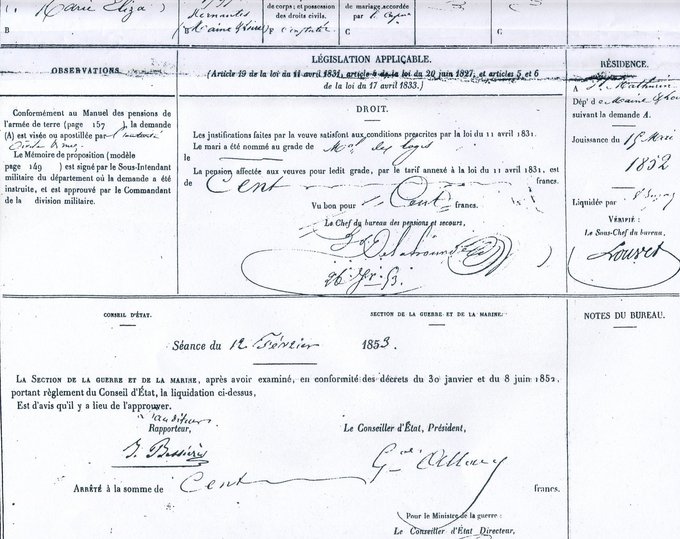 Marie Eliza
de corps; et possession
des droits civils.
de mariage, accordée
B
C
C
OBSERVATIONS.
Conformément au Manuel des pensions de
l'armée de terre (page 157 ), la demande
(A) est visée ou apostillée par
Le Mémoire de proposition (modèle
page 149 ) est signé par le Sous-Intendant
militaire du département où la demande a été
instruite, et est approuvé par le Commandant
de la division militaire.
LÉGISLATION APPLICABLE.
(Article 19 de la loi du 11 avril 1831, article 6 de la loi du 20 juin 1827, et articles 5 et 6
de la loi du 17 avril 1833.)
DROIT.
Les justifications faites par la veuve satisfont aux conditions prescrites par la loi du 11 avril 1831.
Le mari a été nommé au grade de Mal des logis
le
La pension affectée aux veuves pour ledit grade, par le tarif annexé à la loi du 11 avril 1831, est
de Cent francs.
Vu bon pour Cent francs.
Le Chef du bureau des pensions et secours,
RÉSIDENCE.
A St Mathurin
Dépt de Maine & Loire
suivant la demande A.
Jouissance du 15 Mai
1852
Liquidée par
VÉRIFIÉ :
Le Sous-Chef du bureau,
Louvet
CONSEIL D'ÉTAT.
SECTION DE LA GUERRE ET DE LA MARINE.
Séance du 12 Février 1853
La Section de la guerre et de la marine, après avoir examiné, en conformité des décrets du 30 janvier et du 8 juin 1852,
portant règlement du Conseil d'État, la liquidation ci-dessus,
Est d'avis qu'il y a lieu de l'approuver.
auditeur
Rapporteur,
Le Conseiller d'État, Président,
Arrêté à la somme de Cent francs.
Pour le Ministre de la guerre :
Le Conseiller d'État Directeur,
NOTES DU BUREAU.